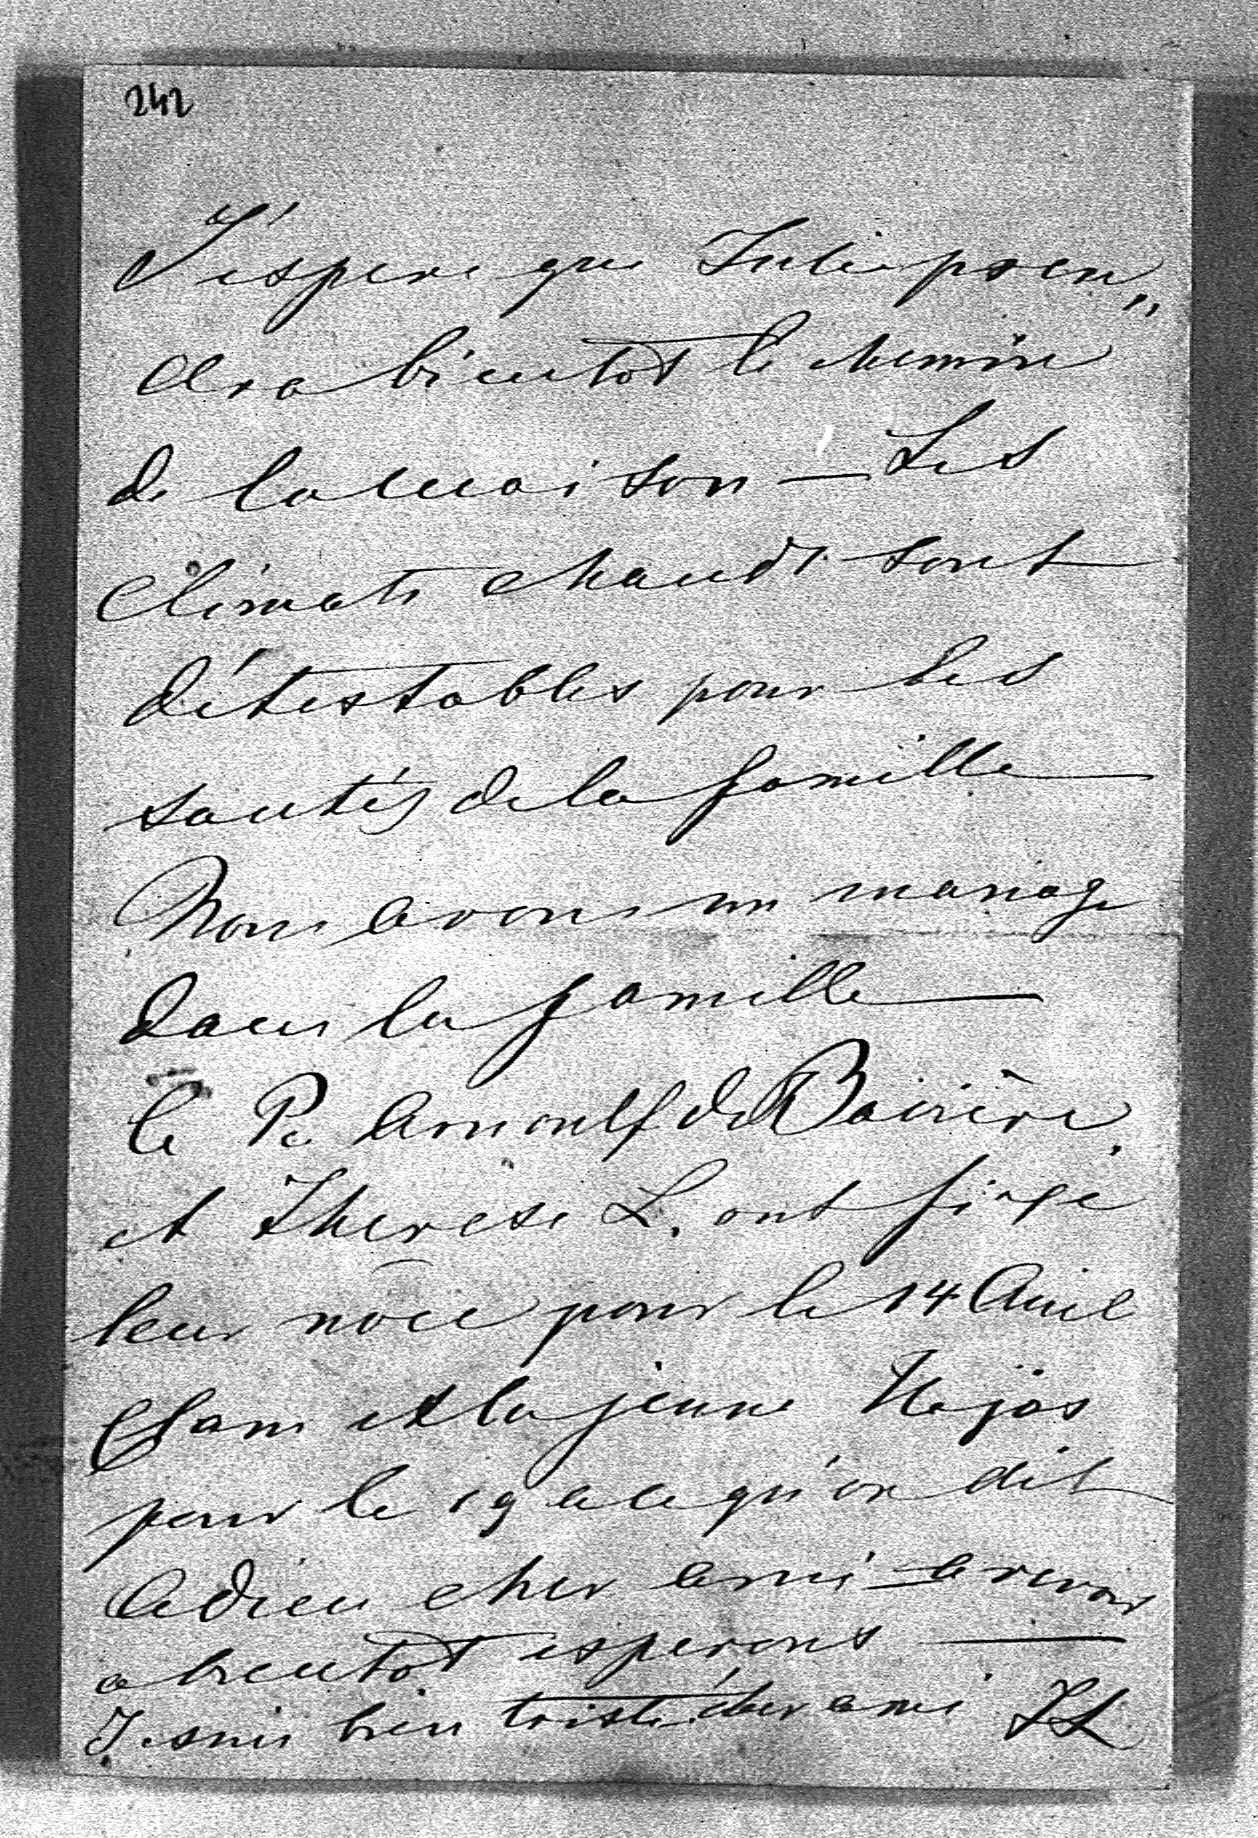 242
J'espere que Julie pren„
dra bientôt le chemin
de la maison — Les
climats chauds sont
détestables pour les
santés de la famille —
Nous avons un mariage
dans la famille —
le Pe Arnoulf de Bavière
et Therese L. ont fixé
leur nôce pour le 14 Avril
et la jeune
pour le 19 a ce qu'on dit
Adieu cher ami — a revoir
a bientôt esperons —
Je suis bien triste cher ami